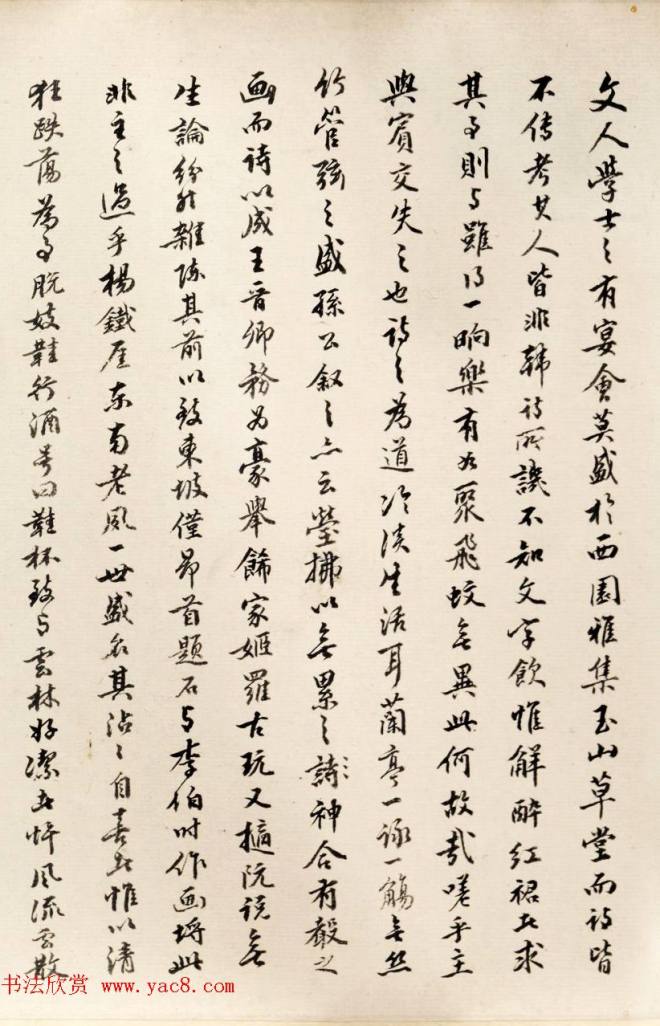 文人學士之有宴會莫盛於西園雅集玉山草堂而詩皆
不传考其人皆非韩詩所譏不知文字飲惟解醉红裙者求
其故則与雖得一晌樂有如聚飛蚊無異此何故哉嗟乎主
與賓交失之也詩之為道冷淡生活耳蘭亭一詠一觴無丝
竹管弦之盛孫公叙之亦云瑩拂以無累之詩神合有聲之
畫而詩以成王晋卿務为豪舉餙家姬羅古玩又摛阮说無
生論纷然雜陈其前以致東坡僅昂首題石与李伯时作画埒此
非主之過乎楊鐵厓东南老風一世盛名其沾沾自喜者惟以清
狂跌蕩為事脱妓鞋行酒号曰鞋杯致与雲林好潔者忤風流雲散
书法欣赏 www.yac8.com